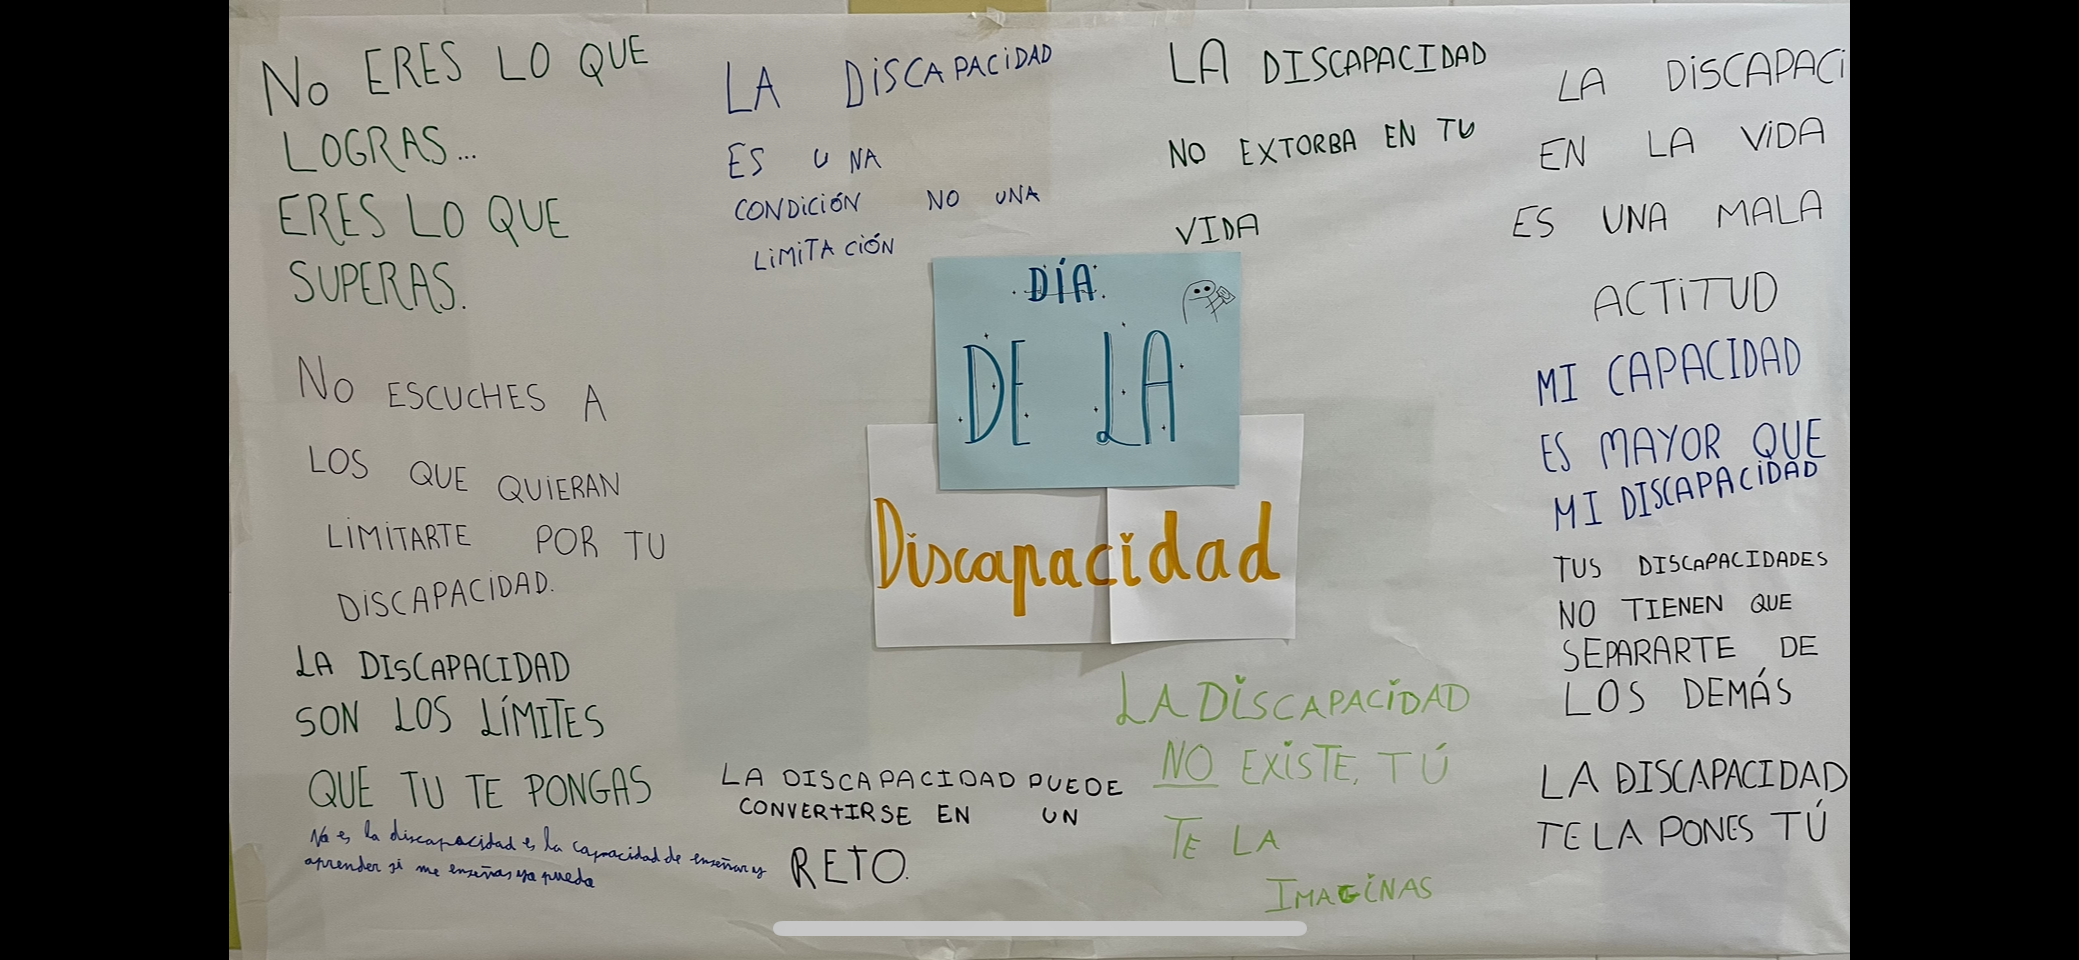 No ERES LO QUE
LOGRAS...
ERES LO QUE
SUPERAS.
No ESCUCHES A
LOS QUE QUIERAN
LIMITARTE POR TU
DISCAPACIDAD.
LA DISCAPACIDAD
SON LOS LÍMITES
QUE TU TE PONGAS
No es la discapacidad es la capacidad de enseñar y
aprender si me enseñas yo puedo
LA DISCAPACIDAD
ES UNA
CONDICIÓN NO UNA
LIMITACIÓN
DÍA
DE LA
Discapacidad
LA DISCAPACIDAD PUEDE
CONVERTIRSE EN UN
RETO.
LA DISCAPACIDAD
NO EXTORBA EN TU
VIDA
LA DISCAPACIDAD
NO EXISTE, TÚ
TE LA
IMAGINAS
LA DISCAPACI
EN LA VIDA
ES UNA MALA
ACTITUD
MI CAPACIDAD
ES MAYOR QUE
MI DISCAPACIDAD
TUS DISCAPACIDADES
NO TIENEN QUE
SEPARARTE DE
LOS DEMÁS
LA DISCAPACIDAD
TE LA PONES TÚ